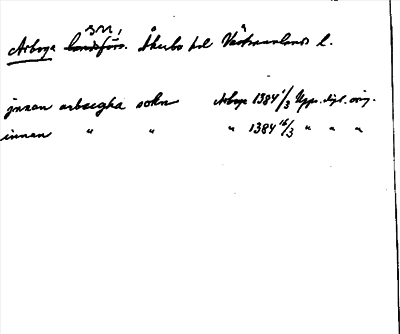 sn,
Arboga landsförs. Åkerbo hd Västmanlands l.
jnnan arboegha sokn Arboga 1384 1/3 Upps. dipl. orig.
innan " " " 1384 16/3 " " "